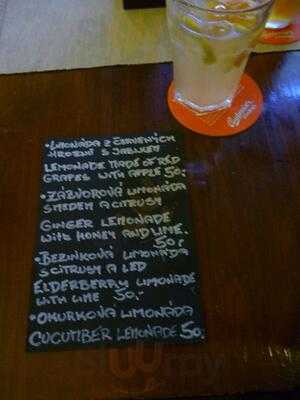 •LIMONÁDA Z ČERVENÝCH
HROZNŮ S JABLKEM
LEMONADE MADE OF RED
GRAPES WITH APPLE 50,-
•ZÁZVOROVÁ LIMONÁDA
SMEDEM A CITRUSY
GINGER LEMONADE
WITH HONEY AND LIME.
50,-
•BEZINKOVÁ LIMONÁDA
SCITRUSY A LED
ELDERBERRY LIMONADE
WITH LIME 50,-
•OKURKOVÁ LIMONÁDA
CUCUMBER LEMONADE 50,-